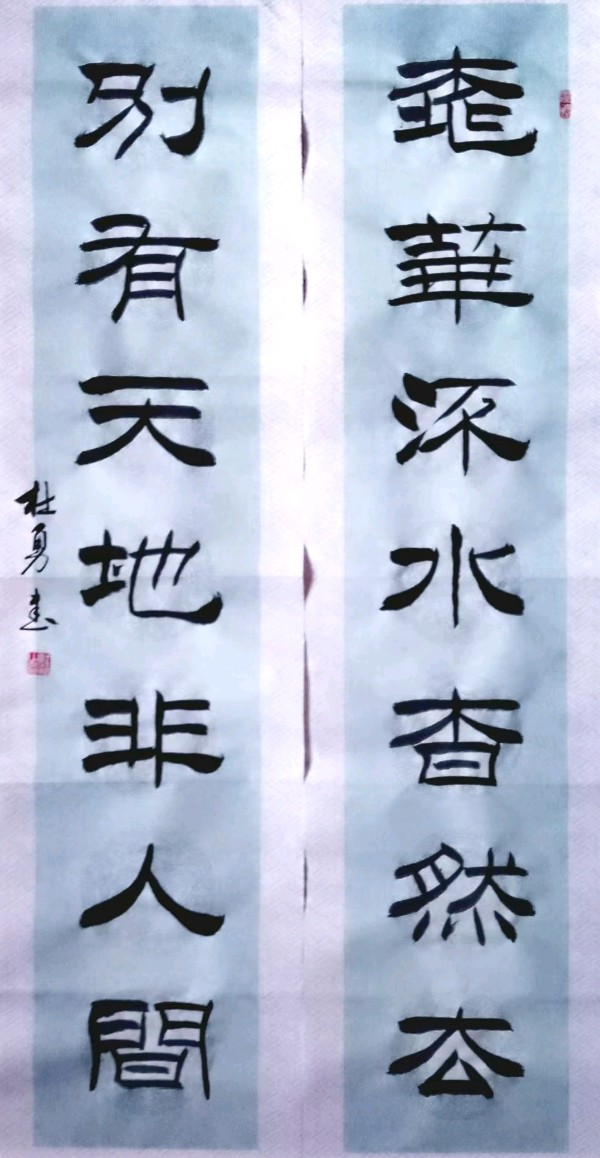 桃華流水杳然去
別有天地非人間
杜勇書